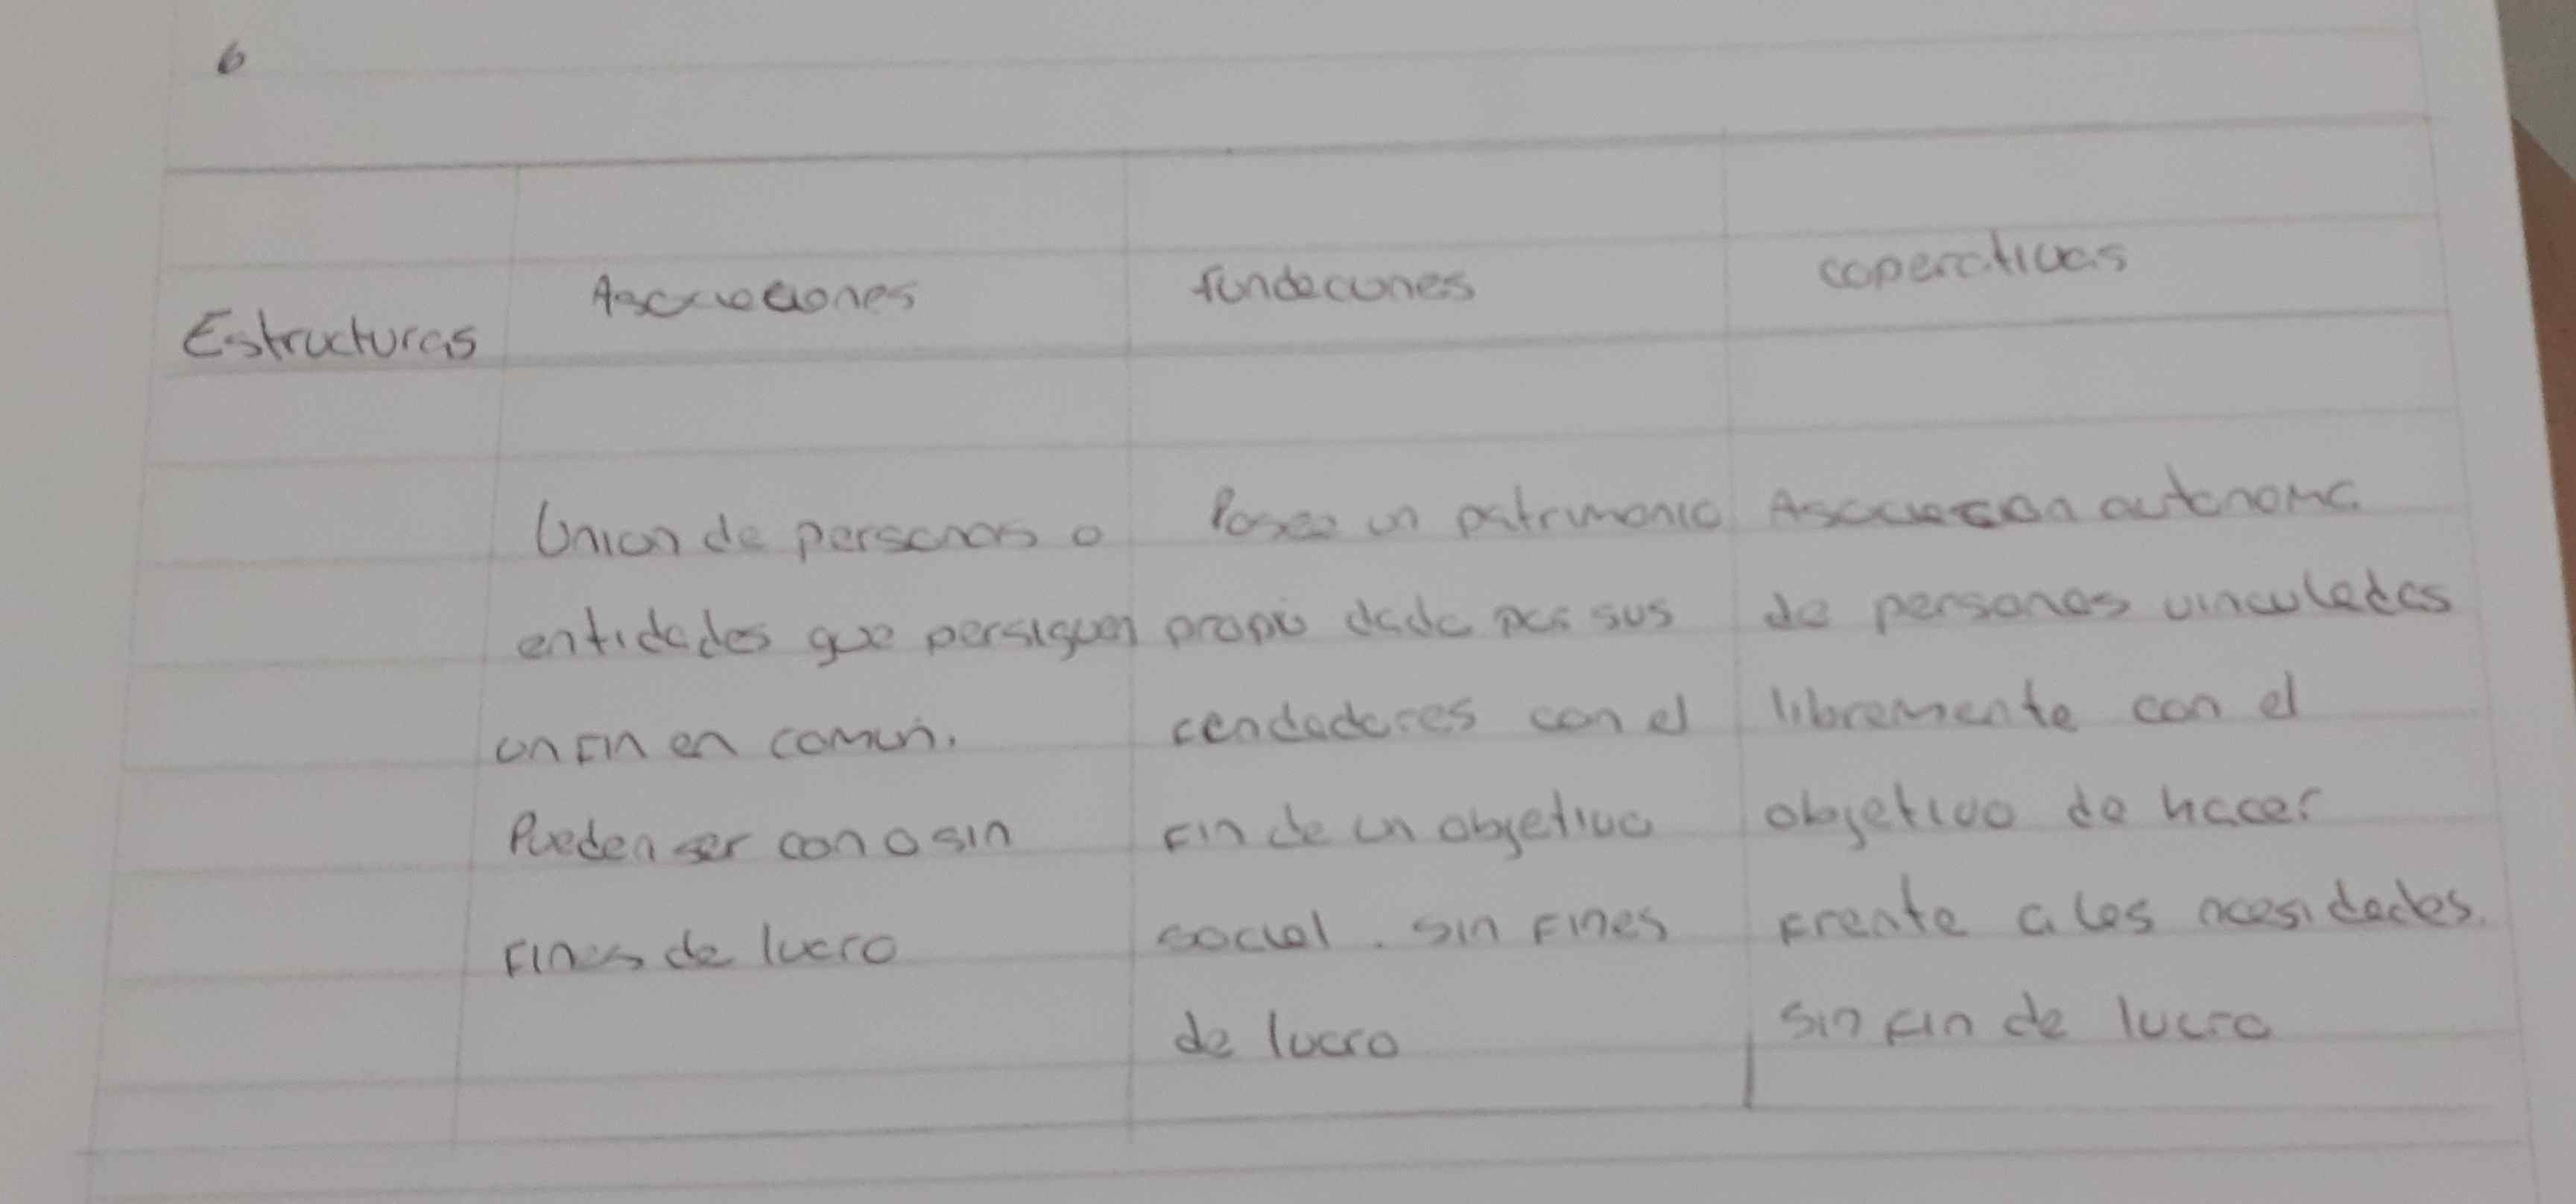 6
Estructuras
Asociaciones
fundaciones
coperativas
Union de personas o
entidades que persiguen
un fin en comun.
Pueden ser con o sin
fines de lucro
Posee un patrimonio
propio dado por sus
con el
fin de un objetivo
social. sin fines
de lucro
Asociacion autonoma
de personas vinculadas
libremente con el
objetivo de hacer
frente a las nesidades.
sin fin de lucro